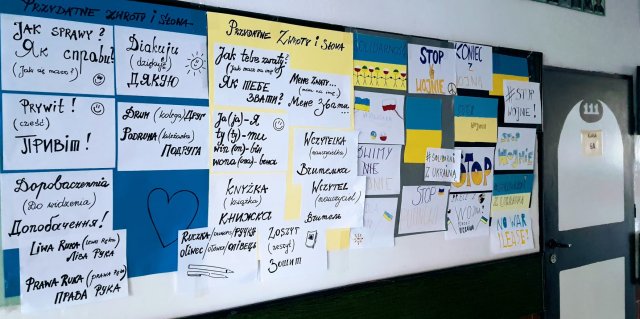 PRZYDATNE ZWROTY I SŁOWA
JAK SPRAWY?
ЯК СПРАВИ?
(Jak się masz?)
Diakuju
(dziękuję)
ДЯКУЮ
Prywit!
(cześć)
ПРИВІТ!
DRUH (kolega) ДРУГ
PODRUHA (koleżanka)
ПОДРУГА
DOPOBACZENNIA
(Do widzenia)
Допобачення!
LIWA RUKA (lewa ręka)
ЛІВА РУКА
PRAWA RUKA (prawa ręka)
ПРАВА РУКА
PRZYDATNE ZWROTY I SŁOWA
Jak tebe zwaty?
(jak masz na imię)
ЯК ТЕБЕ
ЗВАТИ?
Mene Zwaty...
(mam na imię)
Мене Звати...
Ja (ja) - Я
ty (ty) - ти
win (on) - він
wona (ona) - вона
WCZYTELKA
(nauczycielka)
Вчителька
WCZYTEL
(nauczyciel)
Вчитель
KNYŻKA
(książka)
КНИЖКА
RUCZKA
ручка
OLIWEC
ОЛІВЕЦЬ
ZOSZYT
(zeszyt)
Зошит
SOLIDARNOŚĆ
STOP
WOJNIE
KONIEC
WOJNĄ
#STOP
WOJNIE!
#SOLIDARNI
Z UKRAINĄ
STOP
STOP
NO WAR
PLEASE!
111
KLASA